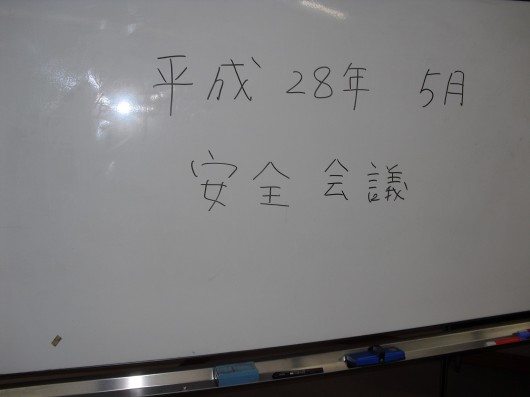 平成 28年 5月
安全 会議